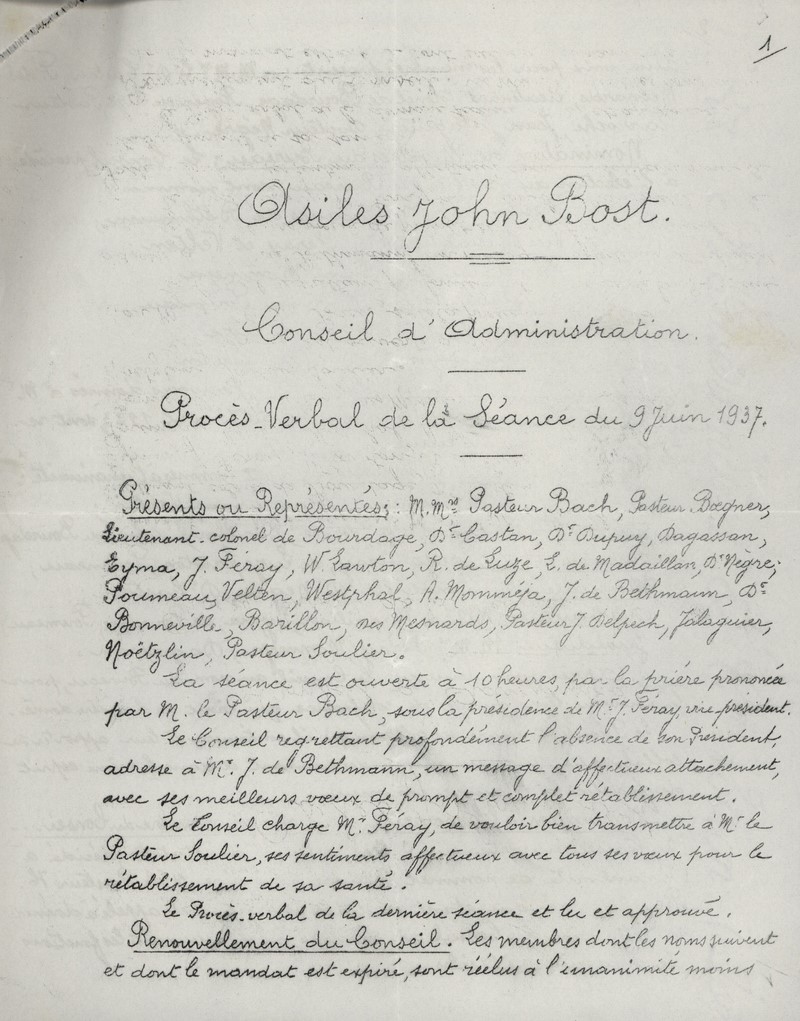 1
Asiles John Bost.
Conseil d'Administration.
Procès-Verbal de la Séance du 9 Juin 1937.
Présents ou Représentés : M.Mrs Pasteur Bach, Pasteur Bœgner,
Lieutenant-colonel de Bourdage, Dr Castan, Dr Dupuy, Dagassan,
Eyma, J. Féray, W. Lawton, R. de Luze, L. de Madaillan, Dr Nègre,
Poumeau, Velten, Westphal, A. Momméja, J. de Bethmann, Dr
Bonneville, Barillon, des Mesnards, Pasteur J. Delpech, Jalaguier,
Noëtzlin, Pasteur Soulier.
La séance est ouverte à 10 heures, par la prière prononcée
par M. le Pasteur Bach, sous la présidence de Mr J. Féray, vice-président.
Le Conseil regrettant profondément l'absence de son Président,
adresse à Mr. J. de Bethmann, un message d'affectueux attachement,
avec ses meilleurs vœux de prompt et complet rétablissement.
Le Conseil charge Mr Féray, de vouloir bien transmettre à Mr le
Pasteur Soulier, ses sentiments affectueux avec tous ses vœux pour le
rétablissement de sa santé.
Le Procès-verbal de la dernière séance et lu et approuvé.
Renouvellement du Conseil. Les membres dont les noms suivent
et dont le mandat est expiré, sont réélus à l'unanimité moins